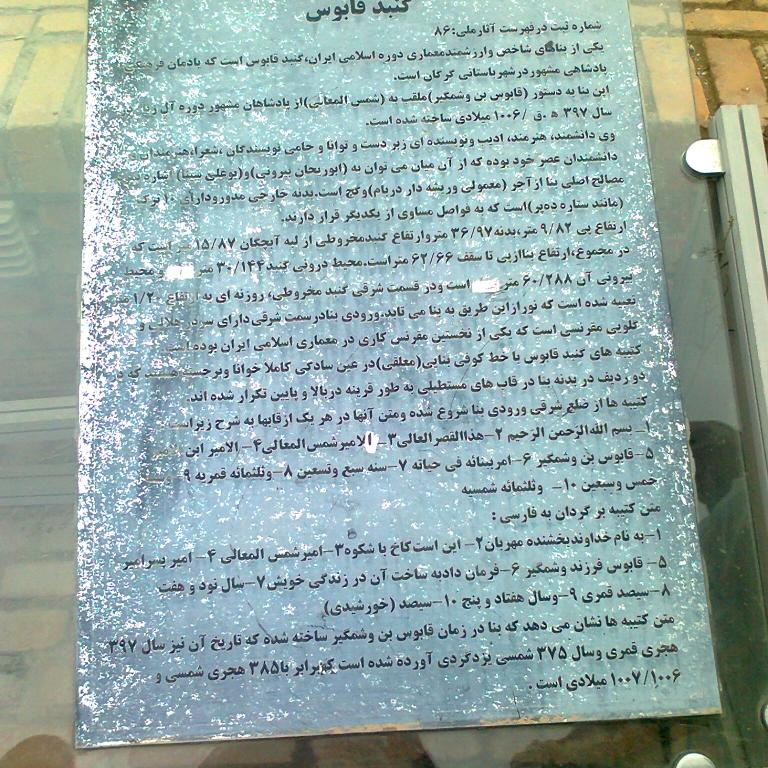 گنبد قابوس
شماره ثبت در فهرست آثار ملی: ۸۶
یکی از بناهای شاخص و ارزشمند معماری دوره اسلامی ایران، گنبد قابوس است که یادمان فرهنگی
پادشاهی مشهور در شهر باستانی گرگان است.
این بنا به دستور (قابوس بن وشمگیر) ملقب به (شمس المعالی) از پادشاهان مشهور دوره آل زیار
سال ۳۹۷ ه.ق / ۱۰۰۶ میلادی ساخته شده است.
وی دانشمند، هنرمند، ادیب و نویسنده ای زبر دست و توانا و حامی نویسندگان، شعرا، هنرمندان و
دانشمندان عصر خود بوده که از آن میان می توان به (ابوریحان بیرونی) و (بوعلی سینا) اشاره
مصالح اصلی بنا از آجر (معمولی وریشه دار دربام) و گچ است. بدنه خارجی مدور و دارای ۱۰ ترک
(مانند ستاره ده پر) است که به فواصل مساوی از یکدیگر قرار دارند.
ارتفاع پی ۹/۸۲ متر، بدنه ۳۶/۹۷ متر و ارتفاع گنبد مخروطی از لبه آبچکان ۱۵/۸۷ متر است که
در مجموع، ارتفاع بنا از پی تا سقف ۶۲/۶۶ متر است. محیط درونی گنبد ۳۰/۱۴۴ متر و محیط
بیرونی آن ۶۰/۲۸۸ متر است و در قسمت شرقی گنبد مخروطی، روزنه ای به ارتفاع ۱/۲۰
تعبیه شده است که نور از این طریق به بنا می تابد. ورودی بنا در سمت شرقی دارای سردر هلالی و
گلویی مقرنسی است که یکی از نخستین مقرنس کاری در معماری اسلامی ایران بوده است.
کتیبه های گنبد قابوس با خط کوفی بنایی (معقلی) در عین سادگی کاملا خوانا و برجسته هستند که در
دو ردیف در بدنه بنا در قاب های مستطیلی به طور قرینه در بالا و پایین تکرار شده اند.
کتیبه ها از ضلع شرقی ورودی بنا شروع شده و متن آنها در هر یک از قابها به شرح زیر است:
۱- بسم الله الرحمن الرحیم ۲- هذا القصر العالی ۳- الامیر شمس المعالی ۴- الامیر ابن
۵- قابوس بن وشمگیر ۶- امر ببنائه فی حیاته ۷- سنه سبع و تسعین ۸- و ثلثمائه قمریه ۹
خمس و سبعین ۱۰- و ثلثمائه شمسیه
متن کتیبه بر گردان به فارسی:
۱- به نام خداوند بخشنده مهربان ۲- این است کاخ با شکوه ۳- امیر شمس المعالی ۴- امیر پسر امیر
۵- قابوس فرزند وشمگیر ۶- فرمان داد به ساخت آن در زندگی خویش ۷- سال نود و هفت
۸- سیصد قمری ۹- و سال هفتاد و پنج ۱۰- سیصد (خورشیدی)
متن کتیبه ها نشان می دهد که بنا در زمان قابوس بن وشمگیر ساخته شده که تاریخ آن نیز سال ۳۹۷
هجری قمری و سال ۳۷۵ شمسی یزدگردی آورده شده است که برابر با ۳۸۵ هجری شمسی و
۱۰۰۷/۱۰۰۶ میلادی است.